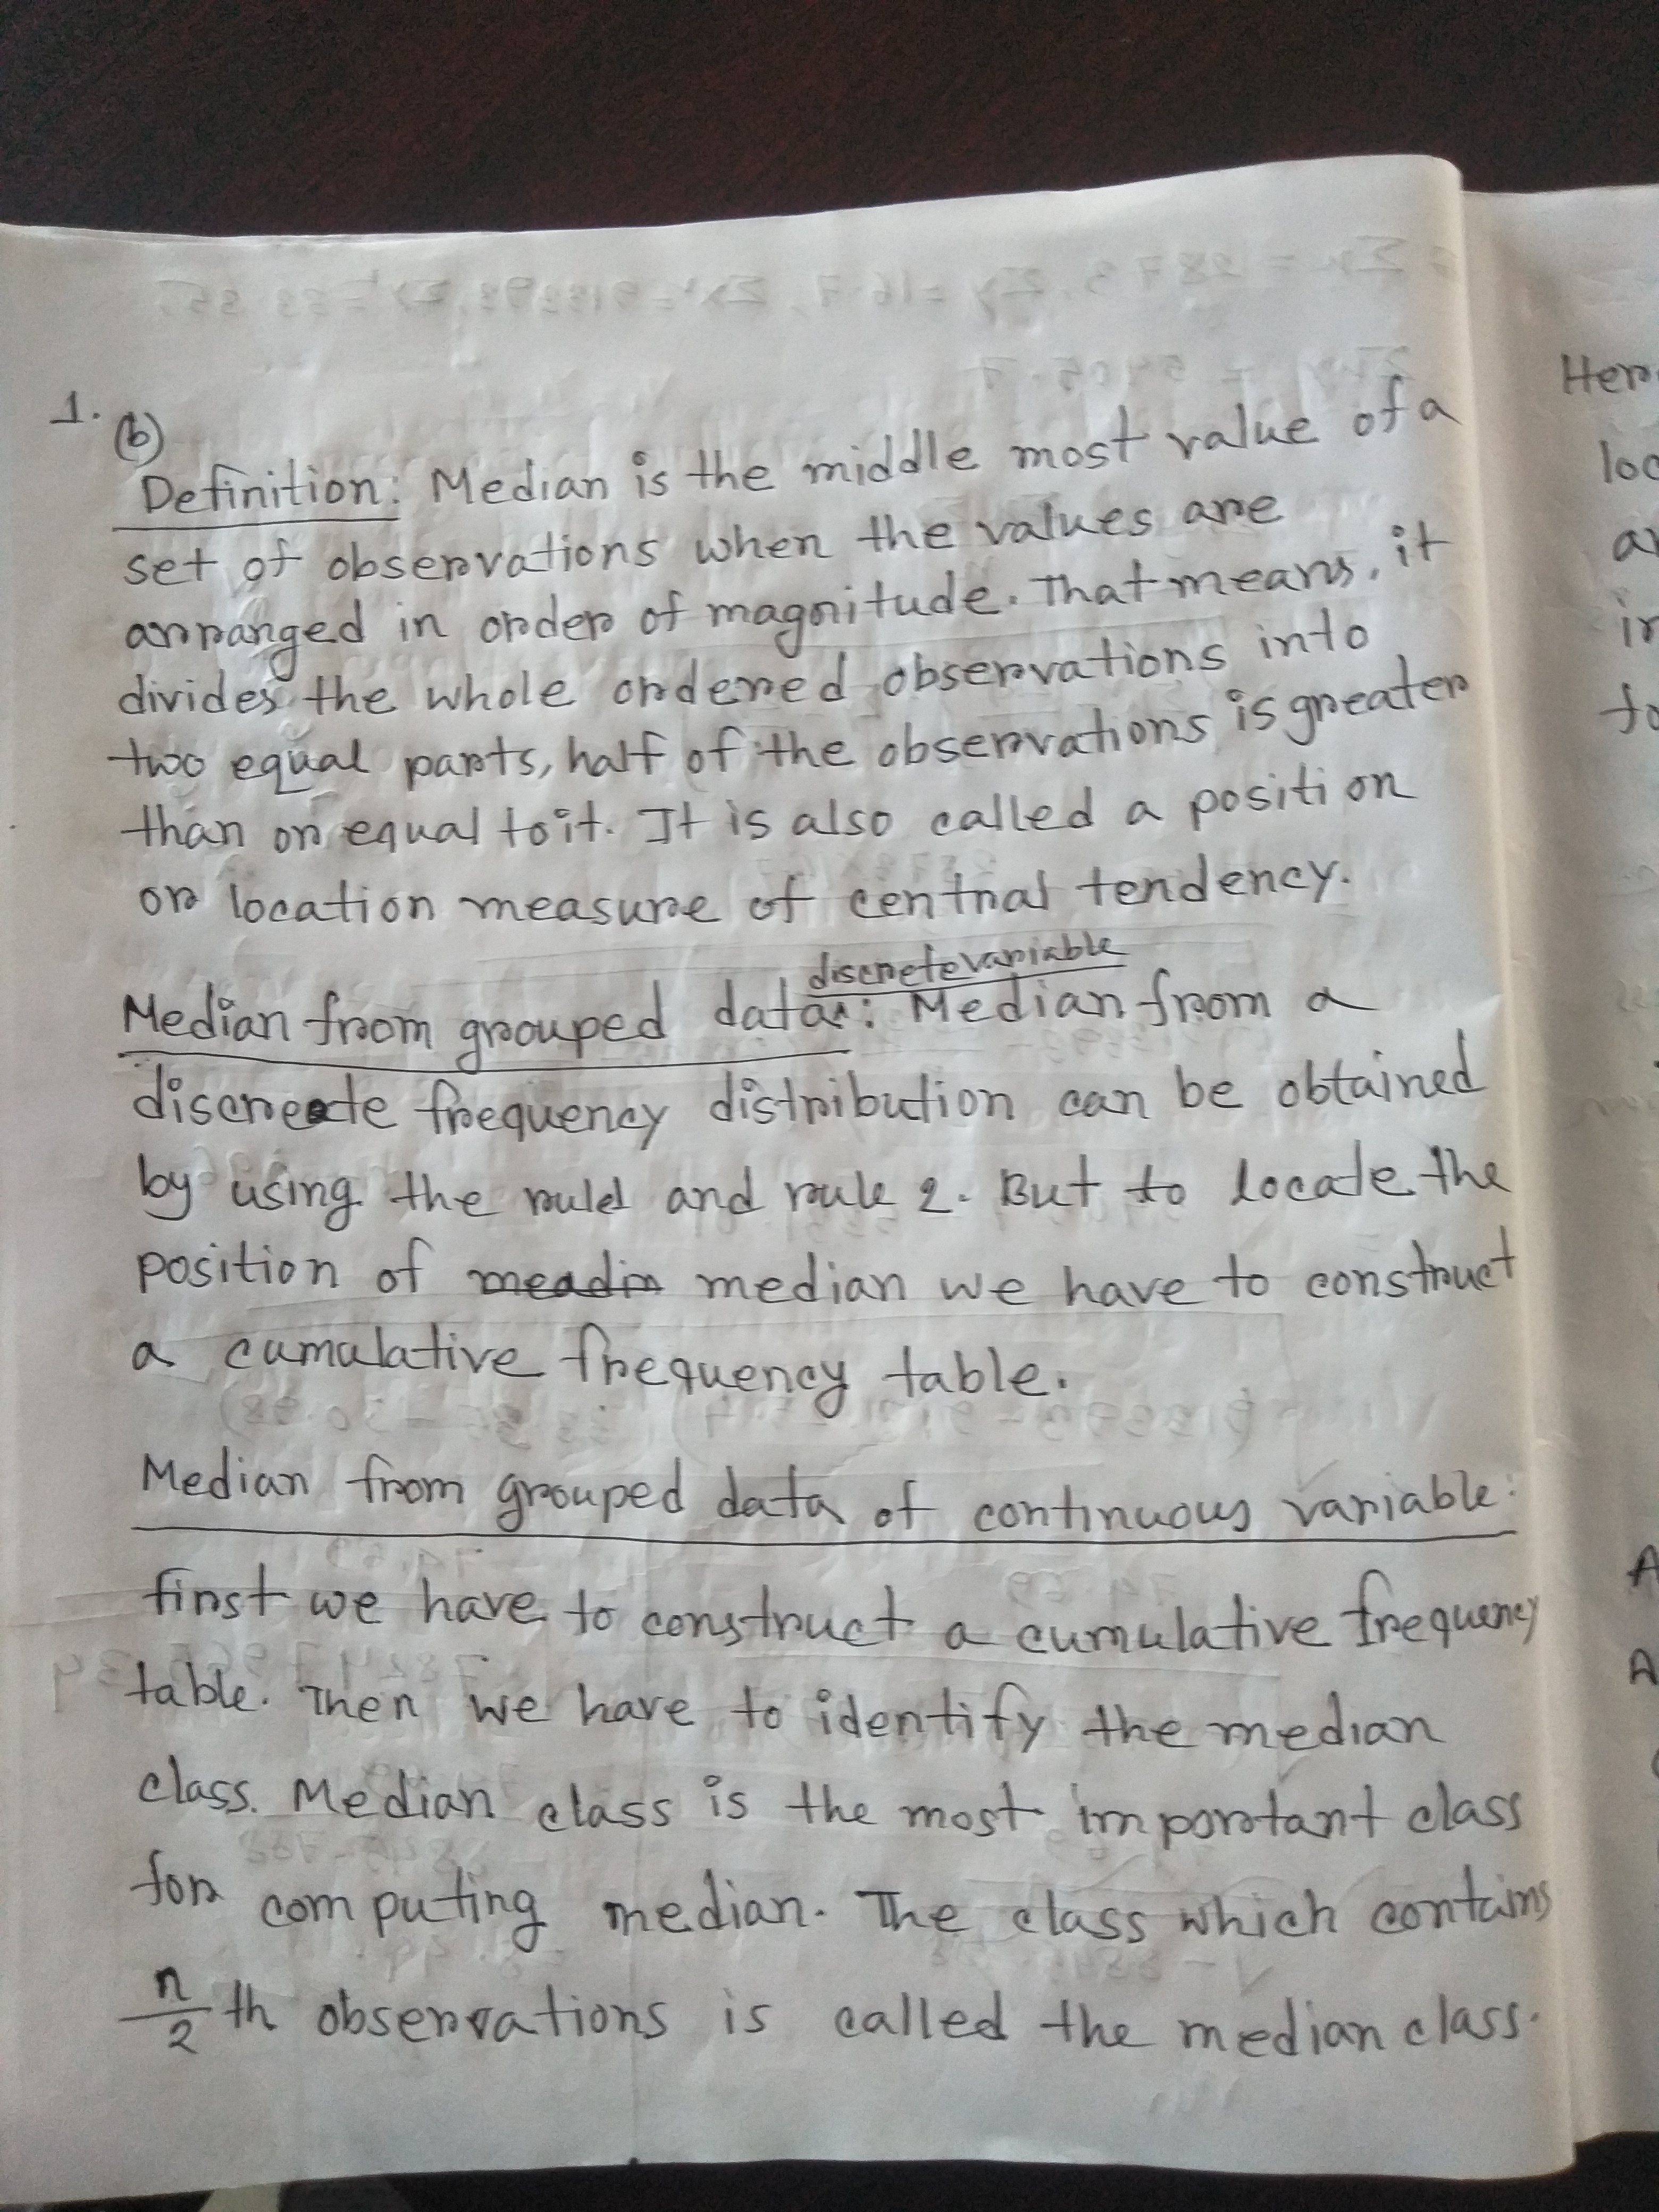 1. (b)
Definition: Median is the middle most value of a
set of observations when the values are
arranged in order of magnitude. That means, it
divides the whole ordered observations into
two equal parts, half of the observations is greater
than or equal to it. It is also called a position
or location measure of central tendency.
discrete variable
Median from grouped data: Median from a
discreate frequency distribution can be obtained
by using the rule1 and rule 2. But to locate the
position of meadin median we have to construct
a cumulative frequency table.
Median from grouped data of continuous variable:
first we have to construct a cumulative frequency
table. Then we have to identify the median
class. Median class is the most important class
for computing median. The class which contains
n/2 th observations is called the median class.
Her
loc
in
to
A
A